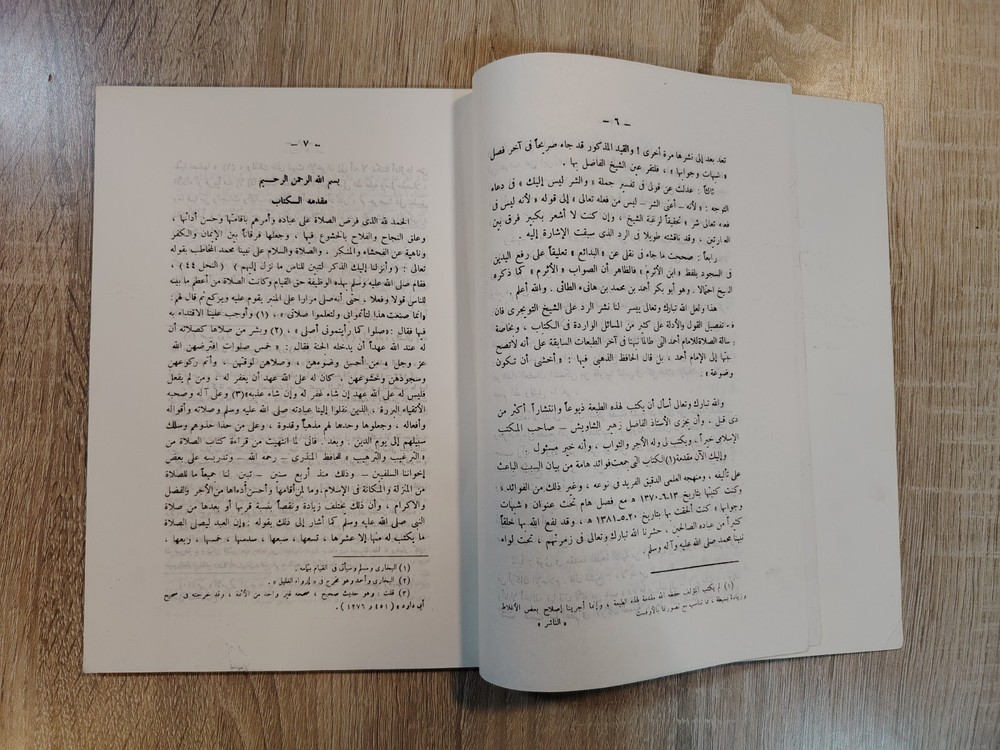 – ٦ –
تعد بعد إلى نشرها مرة أخرى ! والقيد المذكور قد جاء صريحاً فى آخر فصل
« شبهات وجوابها » ، فلتقر عين الشيخ الفاضل بها .
ثالثاً : عدلت عن قولى فى تفسير جملة « والشر ليس إليك » فى دعاء
التوجه : « لأنه – أعنى الشر – ليس من فعله تعالى » إلى قوله « لأنه ليس فى
فعله تعالى شر » تحقيقاً لرغبة الشيخ ، وإن كنت لا أشعر بكبير فرق بين
العبارتين ، وقد ناقشته طويلا فى الرد الذى سبقت الإشارة إليه .
رابعاً : صححت ما جاء فى نقلى عن « البدائع » تعليقاً على رفع اليدين
فى السجود بلفظ « ابن الأثرم » فالظاهر أن الصواب « الأثرم » كما ذكره
الشيخ احتمالا . وهو أبو بكر أحمد بن محمد بن هانىء الطائى . والله أعلم .
هذا ولعل الله تبارك وتعالى ييسر لنا نشر الرد على الشيخ التويجرى فان
فيه تفصيل القول والأدلة على كثير من المسائل الواردة فى الكتاب ، وبخاصة
رسالة الصلاة للامام أحمد التى طالما نبهنا فى آخر الطبعات السابقة على أنه لاتصح
نسبتها إلى الإمام أحمد ، بل قال الحافظ الذهبى فيها : « أخشى أن تكون
موضوعة » .
والله تبارك وتعالى أسأل أن يكتب لهذه الطبعة ذيوعاً وانتشاراً أكثر من
ذى قبل . وأن يجزى الأستاذ الفاضل زهير الشاويش – صاحب المكتب
الإسلامى خيراً ، ويكتب لى وله الأجر والثواب ، وأنه خير مسئول .
وإليك الآن مقدمة(١)الكتاب التى جمعت فوائد هامة من بيان السبب الباعث
على تأليفه ، ومنهجه العلمى الدقيق الفريد فى نوعه ، وغير ذلك من الفوائد ،
وكنت كتبتها بتاريخ ١٣-٦-١٣٧٠ هـ مع فصل هام تحت عنوان « شبهات
وجوابها » كنت ألحقت بها بتاريخ ٢٠-٥-١٣٨١ هـ ، وقد نفع الله بها خلقاً
كثيراً من عباده الصالحين ، حشرنا الله تبارك وتعالى فى زمرتهم ، تحت لواء
نبينا محمد صلى الله عليه وآله وسلم .
(١) لم يكتب المؤلف حفظه الله مقدمة لهذه الطبعة ، وإنما أجرينا إصلاح بعض الأغلاط
وزيادة بسيطة ، بما تناسب مع تصويرها بالأوفست
« الناشر »
– ٧ –
بسم الله الرحمن الرحيم
مقدمه الكتاب
الحمد لله الذى فرض الصلاة على عباده وأمرهم باقامتها وحسن أدائها ،
وعلق النجاح والفلاح بالخشوع فيها ، وجعلها فرقاناً بين الإيمان والكفر
وناهية عن الفحشاء والمنكر . والصلاة والسلام على نبينا محمد المخاطب بقوله
تعالى : ( وأنزلنا إليك الذكر لتبين للناس ما نزل إليهم ) ( النحل ٤٤ ) ،
فقام صلى الله عليه وسلم بهذه الوظيفة حق القيام وكانت الصلاة من أعظم ما بينه
للناس قولا وفعلا ، حتى أنه صلى مرارا على المنبر يقوم عليه ويركع ثم قال لهم :
« إنما صنعت هذا لتأتموابى ولتعلموا صلاتى » ، (١) وأوجب علينا الاقتداء به
فيها فقال : «صلوا كما رأيتمونى أصلى » ، (٢) وبشر من صلاها كصلاته أن
له عند الله عهداً أن يدخله الجنة فقال : « خمس صلوات افترضهن الله
عز وجل ، من أحسن وضوءهن ، وصلاهن لوقتهن ، وأتم ركوعهن
وسجودهن وخشوعهن ، كان له على الله عهد أن يغفر له ، ومن لم يفعل
فليس له على الله عهد إن شاء غفر له ، وإن شاء عذبه»(٣) وعلى آله وصحبه
الأتقياء البررة ، الذين نقلوا إلينا عبادته صلى الله عليه وسلم وصلاته وأقواله
وأفعاله ، وجعلوها وحدها لهم مذهباً وقدوة ، وعلى من حذا حذوهم وسلك
سبيلهم إلى يوم الدين . وبعد . فانى لما انتهيت من قراءة كتاب الصلاة من
« الترغيب والترهيب » للحافظ المنذرى – رحمه الله – وتدريسه على بعض
إخواننا السلفيين – وذلك منذ أربع سنين – تبين لنا جميعاً ما للصلاة
من المنزلة والمكانة فى الإسلام، وما لمن أقامها وأحسن أداءها من الأجر والفضل
والاكرام ، وأن ذلك يختلف زيادة ونقصاً بنسبة قربها أو بعدها من صلاة
النبى صلى الله عليه وسلم كما أشار إلى ذلك بقوله : «إن العبد ليصلى الصلاة
ما يكتب له منها إلا عشرها ، تسعها ، ثمنها ، سبعها ، سدسها ، خمسها ، ربعها ،
(١) البخارى ومسلم وسيأتى فى القيام بتمامه .
(٢) البخارى وأحمد وهو مخرج فى « إرواء الغليل » .
(٣) قلت : وهو حديث صحيح ، صححه غير واحد من الأئمة ، وقد خرجته فى صحيح
أبى داود » ( ٤٥١ و ١٢٧٦ ) .